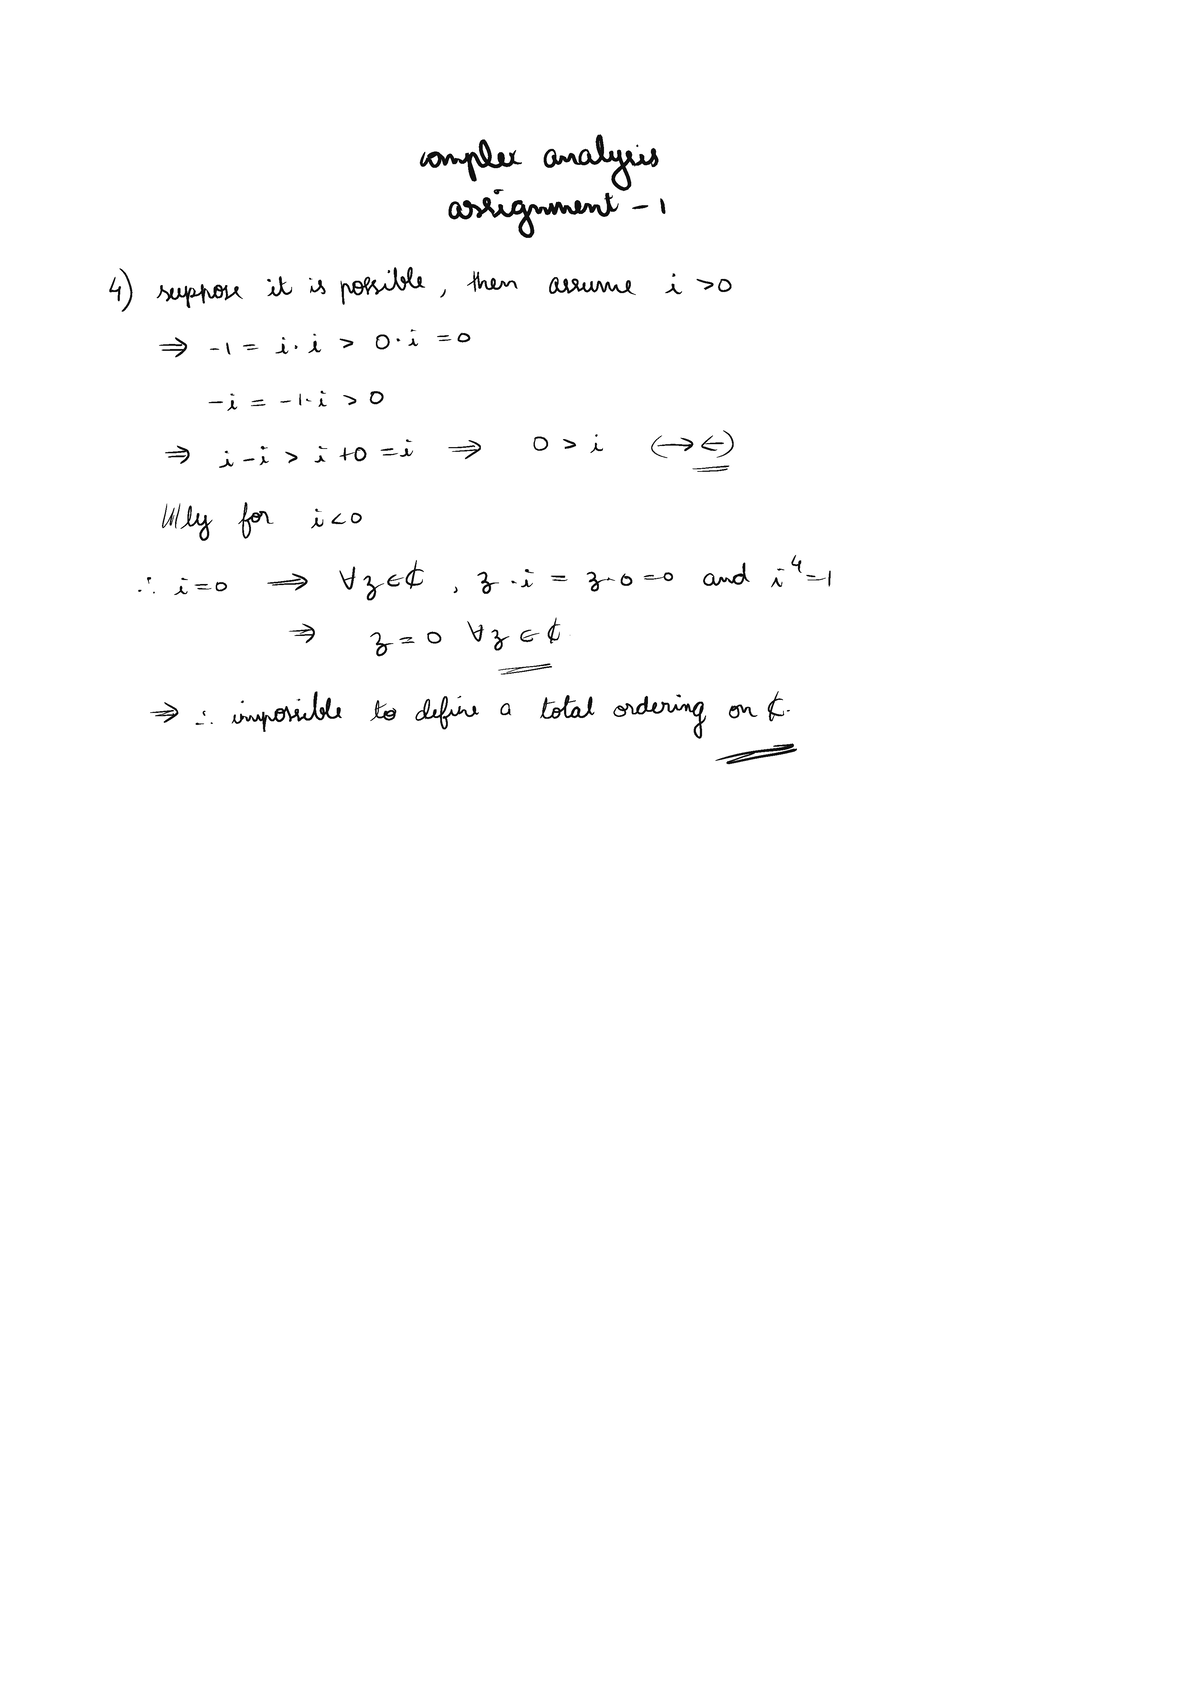 complex analysis
assignment - 1
4) suppose it is possible, then assume i > 0
⇒ -1 = i · i > 0 · i = 0
-i = -1 · i > 0
⇒ i - i > i + 0 = i ⇒ 0 > i (→←)
lllly for i < 0
∴ i = 0 ⇒ ∀ z ∈ ℂ, z · i = z · 0 = 0 and i⁴ = 1
⇒ z = 0 ∀ z ∈ ℂ
⇒ ∴ impossible to define a total ordering on ℂ.